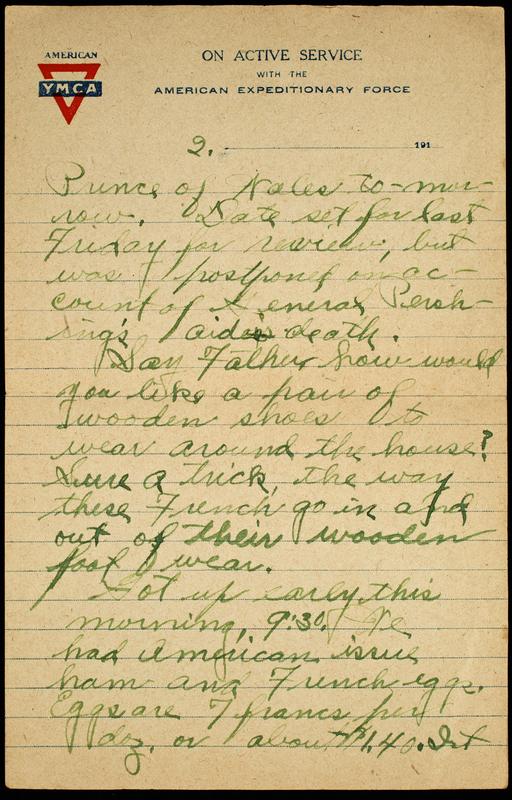 AMERICAN
YMCA
ON ACTIVE SERVICE
WITH THE
AMERICAN EXPEDITIONARY FORCE
2. 191
Prince of Wales to-mor-
row. Date set for last
Friday for review, but
was postponed on ac-
count of General Persh-
ing's aide's death.
Say Father how would
you like a pair of
wooden shoes to
wear around the house?
Sure a trick, the way
these French go in and
out of their wooden
foot wear.
Got up early this
morning, 9:30. We
had American issue
ham and French eggs.
Eggs are 7 francs per
doz. or about $1.40. Ist